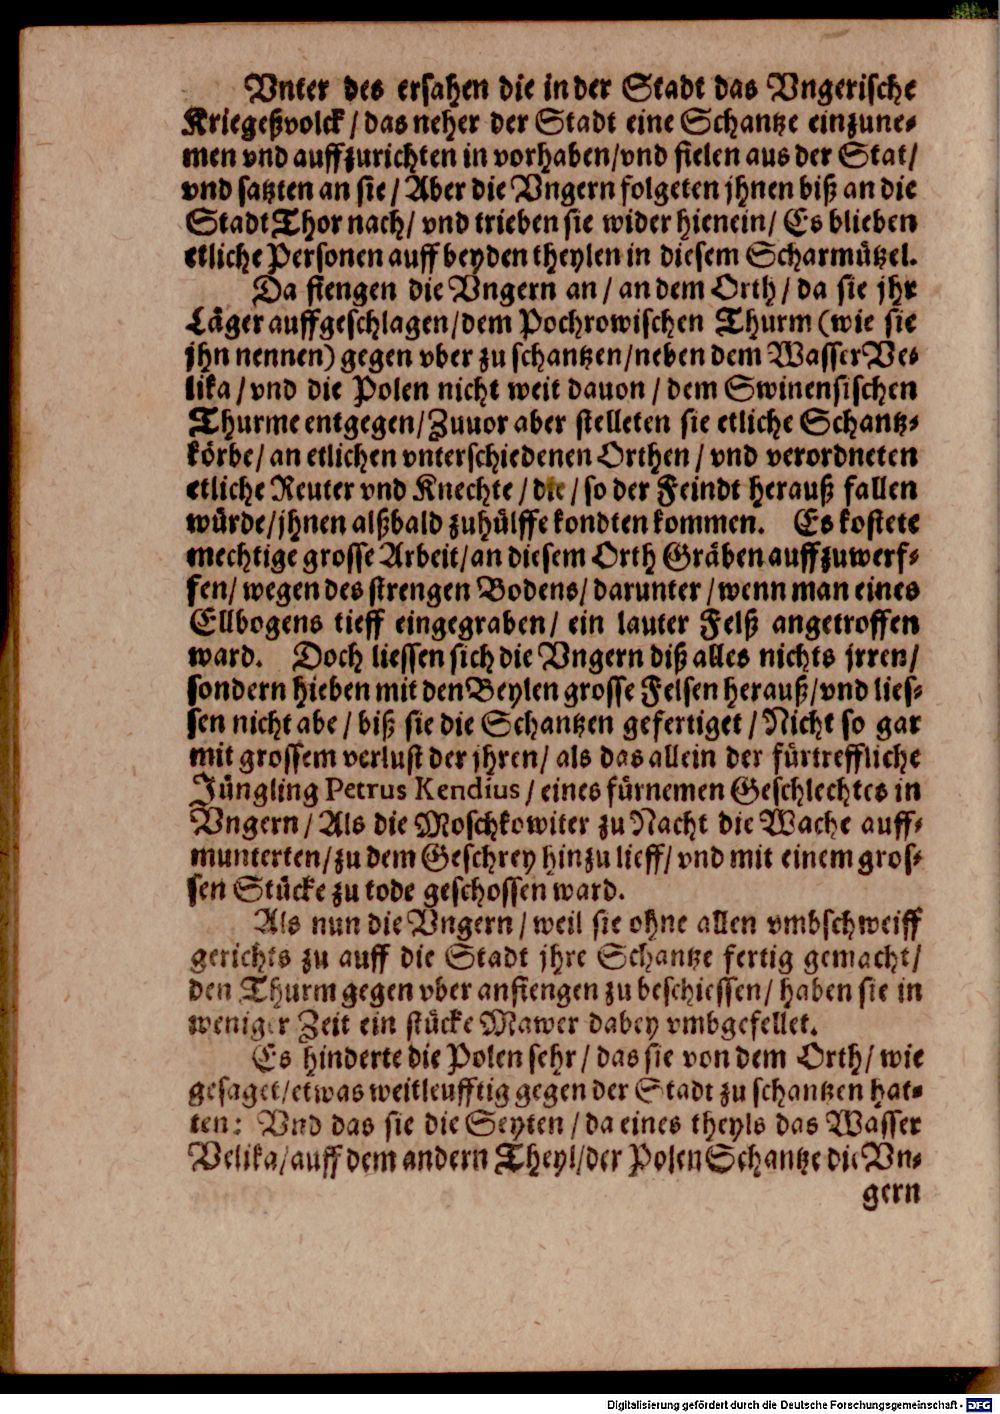 Vnter des ersahen die in der Stadt das Vngerische
Kriegeßvolck / das neher der Stadt eine Schantze einzune-
men vnd auffzurichten in vorhaben/ vnd fielen aus der Stat/
vnd satzten an sie / Aber die Vngern folgeten jhnen biß an die
Stadt Thor nach/ vnd trieben sie wider hienein/ Es blieben
etliche Personen auff beyden theylen in diesem Scharmützel.
Da fiengen die Vngern an / an dem Orth / da sie jhr
Läger auffgeschlagen/ dem Pochrowischen Thurm (wie sie
jhn nennen) gegen vber zu schantzen/ neben dem Wasser Ve-
lika / vnd die Polen nicht weit dauon / dem Swinensischen
Thurme entgegen/ Zuuor aber stelleten sie etliche Schantz-
körbe/ an etlichen vnterschiedenen Orthen / vnd verordneten
etliche Reuter vnd Knechte / die / so der Feindt herauß fallen
würde/ jhnen alßbald zuhülffe kondten kommen. Es kostete
mechtige grosse Arbeit/ an diesem Orth Gräben auffzuwerf-
fen/ wegen des strengen Bodens/ darunter / wenn man eines
Ellbogens tieff eingegraben/ ein lauter Felß angetroffen
ward. Doch liessen sich die Vngern diß alles nichts jrren/
sondern hieben mit den Beylen grosse Felsen herauß/ vnd lies-
sen nicht abe / biß sie die Schantzen gefertiget / Nicht so gar
mit grossem verlust der jhren/ als das allein der fürtreffliche
Jüngling Petrus Kendius / eines fürnemen Geschlechtes in
Vngern / Als die Moschkowiter zu Nacht die Wache auff-
munterten/ zu dem Geschrey hinzu lieff/ vnd mit einem gros-
sen Stücke zu tode geschossen ward.
Als nun die Vngern / weil sie ohne allen vmbschweiff
gerichts zu auff die Stadt jhre Schantze fertig gemacht/
den Thurm gegen vber anfiengen zu beschiessen/ haben sie in
weniger Zeit ein stücke Mawer dabey vmbgefellet.
Es hinderte die Polen sehr / das sie von dem Orth/ wie
gesaget/ etwas weitleufftig gegen der Stadt zu schantzen hat-
ten: Vnd das sie die Seyten / da eines theyls das Wasser
Velika/ auff dem andern Theyl/ der Polen Schantze die Vn-
gern
Digitalisierung gefördert durch die Deutsche Forschungsgemeinschaft - DFG